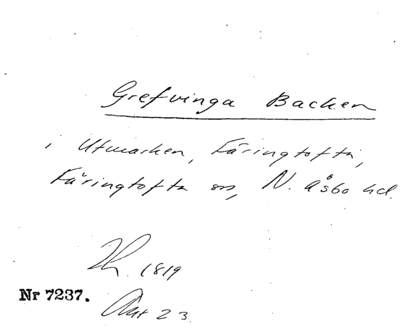 Grefvinga Backen
i Utmarken, Färingtofta,
Färingtofta sn, N. Åsbo hd.
1819
Nr 7237.
23